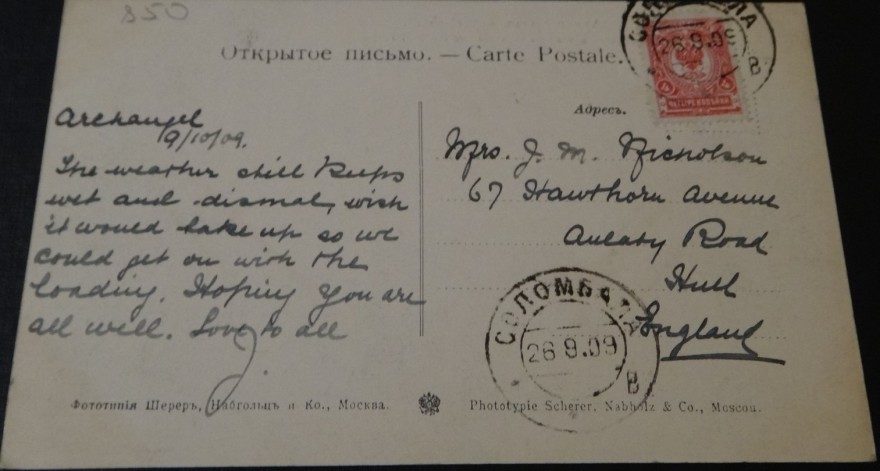 850
Открытое письмо. — Carte Postale.
СОЛОМБАЛА
26.9.09
В
4 4
ЧЕТЫРЕ КОПѢЙКИ
Адресъ.
Archangel
9/10/09.
The weather still keeps
wet and dismal, wish
it would take up so we
could get on with the
loading. Hoping you are
all well. Love to all
J.
Mrs. J. M. Nicholson
67 Hawthorn Avenue
Anlaby Road
Hull
England
СОЛОМБАЛА
26 9.09
В
Фототипія Шереръ, Набгольцъ и Ко., Москва.
Phototypie Scherer, Nabholz & Co., Moscou.